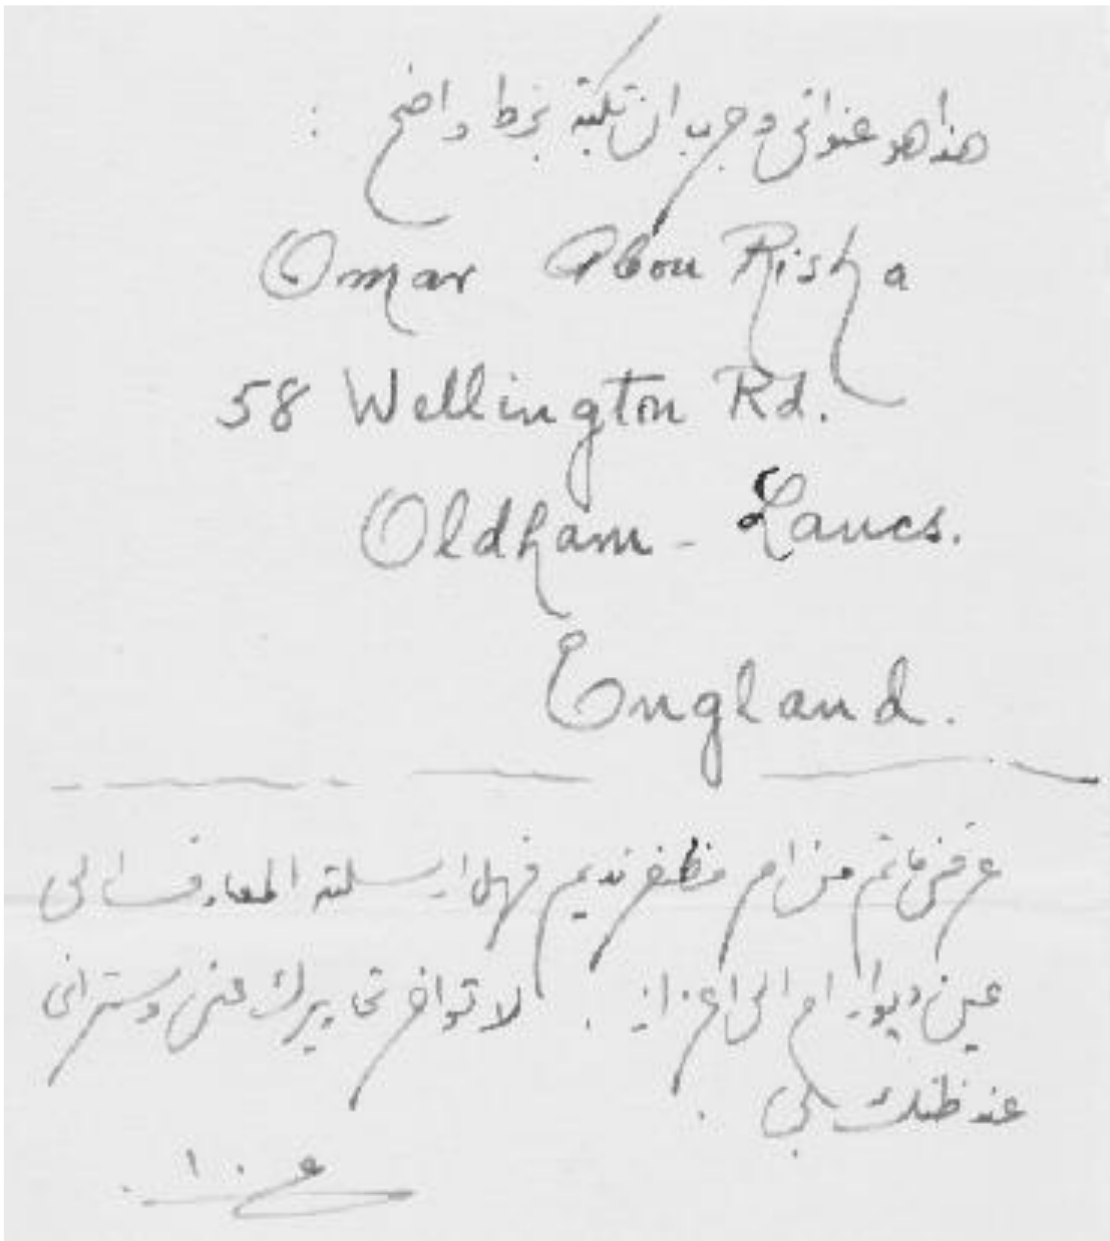 هذا هو عنواني وجرب ان تكتبه بخط واضح :
Omar Abou Risha
58 Wellington Rd.
Oldham - Lancs.
England.
من ام مظفر نديم فهل ارسلته المعارف الى
عين ديوار ام الى اعزاز . لا تؤخر تحاريرك عني وستراني
عند ظنك بي .
ع . ا .